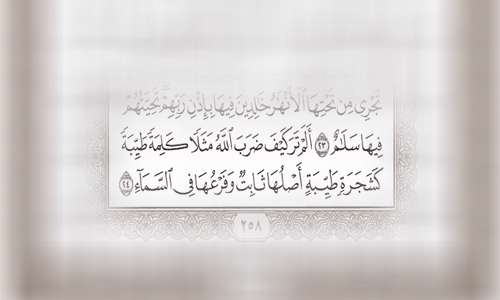 تَجْرِى مِن تَحْتِهَا ٱلْأَنْهَٰرُ خَٰلِدِينَ فِيهَا بِإِذْنِ رَبِّهِمْ ۖ تَحِيَّتُهُمْ
فِيهَا سَلَٰمٌ ٢٣ أَلَمْ تَرَ كَيْفَ ضَرَبَ ٱللَّهُ مَثَلًا كَلِمَةً طَيِّبَةً
كَشَجَرَةٍ طَيِّبَةٍ أَصْلُهَا ثَابِتٌ وَفَرْعُهَا فِى ٱلسَّمَآءِ ٢٤
٢٥٨